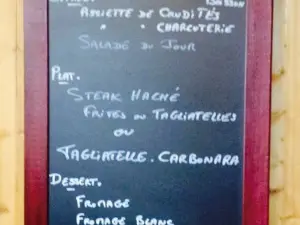 ASSIETTE DE CRUDITÉS
" " CHARCUTERIE
SALADE DU JOUR
PLAT.
STEAK HACHÉ
FRITES OU TAGLIATELLES
OU
TAGLIATELLE. CARBONARA
DESSERT.
FROMAGE
FROMAGE BLANC